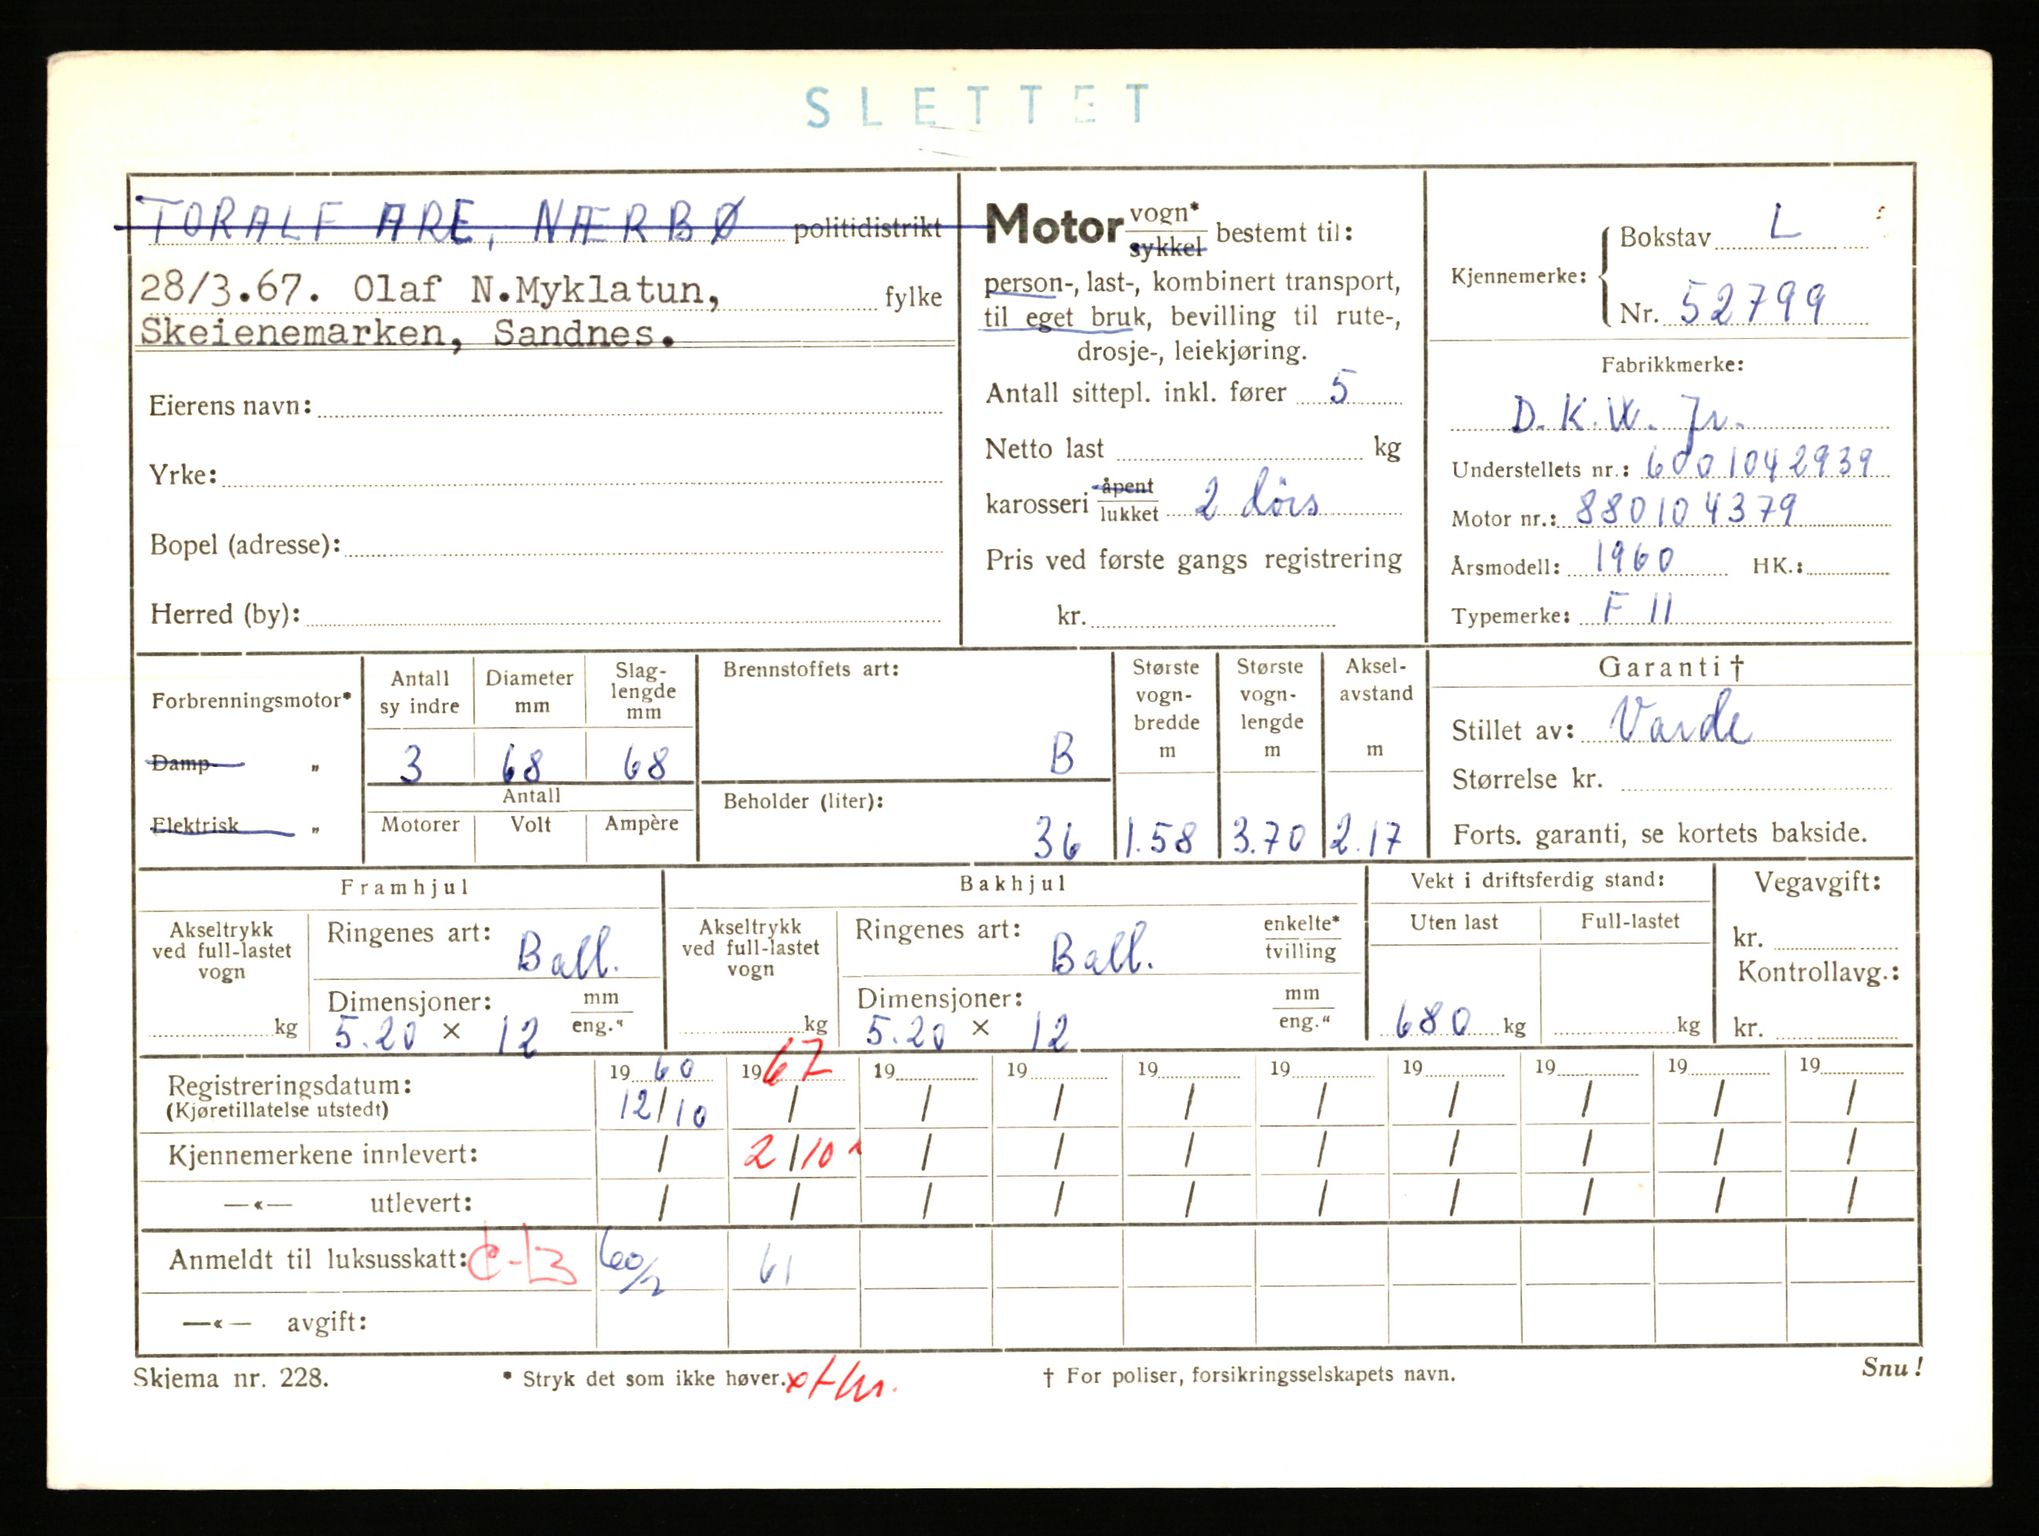 SLETTET
TORALF ARE, NÆRBØ politidistrikt
28/3.67. Olaf N.Myklatun, fylke
Skeienemarken, Sandnes.
Eierens navn:
Yrke:
Bopel (adresse):
Herred (by):
Motor vogn* sykkel bestemt til:
person-, last-, kombinert transport,
til eget bruk, bevilling til rute-,
drosje-, leiekjøring.
Antall sittepl. inkl. fører 5
Netto last kg
karosseri åpent lukket 2 dørs
Pris ved første gangs registrering
kr.
Kjennemerke: Bokstav L
Nr. 52799
Fabrikkmerke:
D.K.W. Jr.
Understellets nr.: 6001042939
Motor nr.: 880104379
Årsmodell: 1960 HK.:
Typemerke: F 11
Forbrenningsmotor*
Damp „
Elektrisk „
Antall sy indre Diameter mm Slag-lengde mm
3 68 68
Antall
Motorer Volt Ampère
Brennstoffets art:
B
Beholder (liter):
36
Største vogn-bredde m
1.58
Største vogn-lengde m
3.70
Aksel-avstand m
2.17
Garanti †
Stillet av: Varde
Størrelse kr.
Forts. garanti, se kortets bakside.
Framhjul
Akseltrykk
ved full-lastet
vogn
kg
Ringenes art: Ball.
Dimensjoner: mm eng."
5.20 × 12
Bakhjul
Akseltrykk
ved full-lastet
vogn
kg
Ringenes art: Ball. enkelte* tvilling
Dimensjoner: mm eng."
5.20 × 12
Vekt i driftsferdig stand:
Uten last Full-lastet
680 kg kg
Vegavgift:
kr.
Kontrollavg.:
kr.
Registreringsdatum: 1960 1967 19 19 19 19 19 19 19 19
(Kjøretillatelse utstedt) 12/10 / / / / / / / / /
Kjennemerkene innlevert: / 2/10 / / / / / / / /
—«— utlevert: / / / / / / / / / /
Anmeldt til luksusskatt: 60/2 61
—«— avgift:
Skjema nr. 228. * Stryk det som ikke høver. † For poliser, forsikringsselskapets navn. Snu!